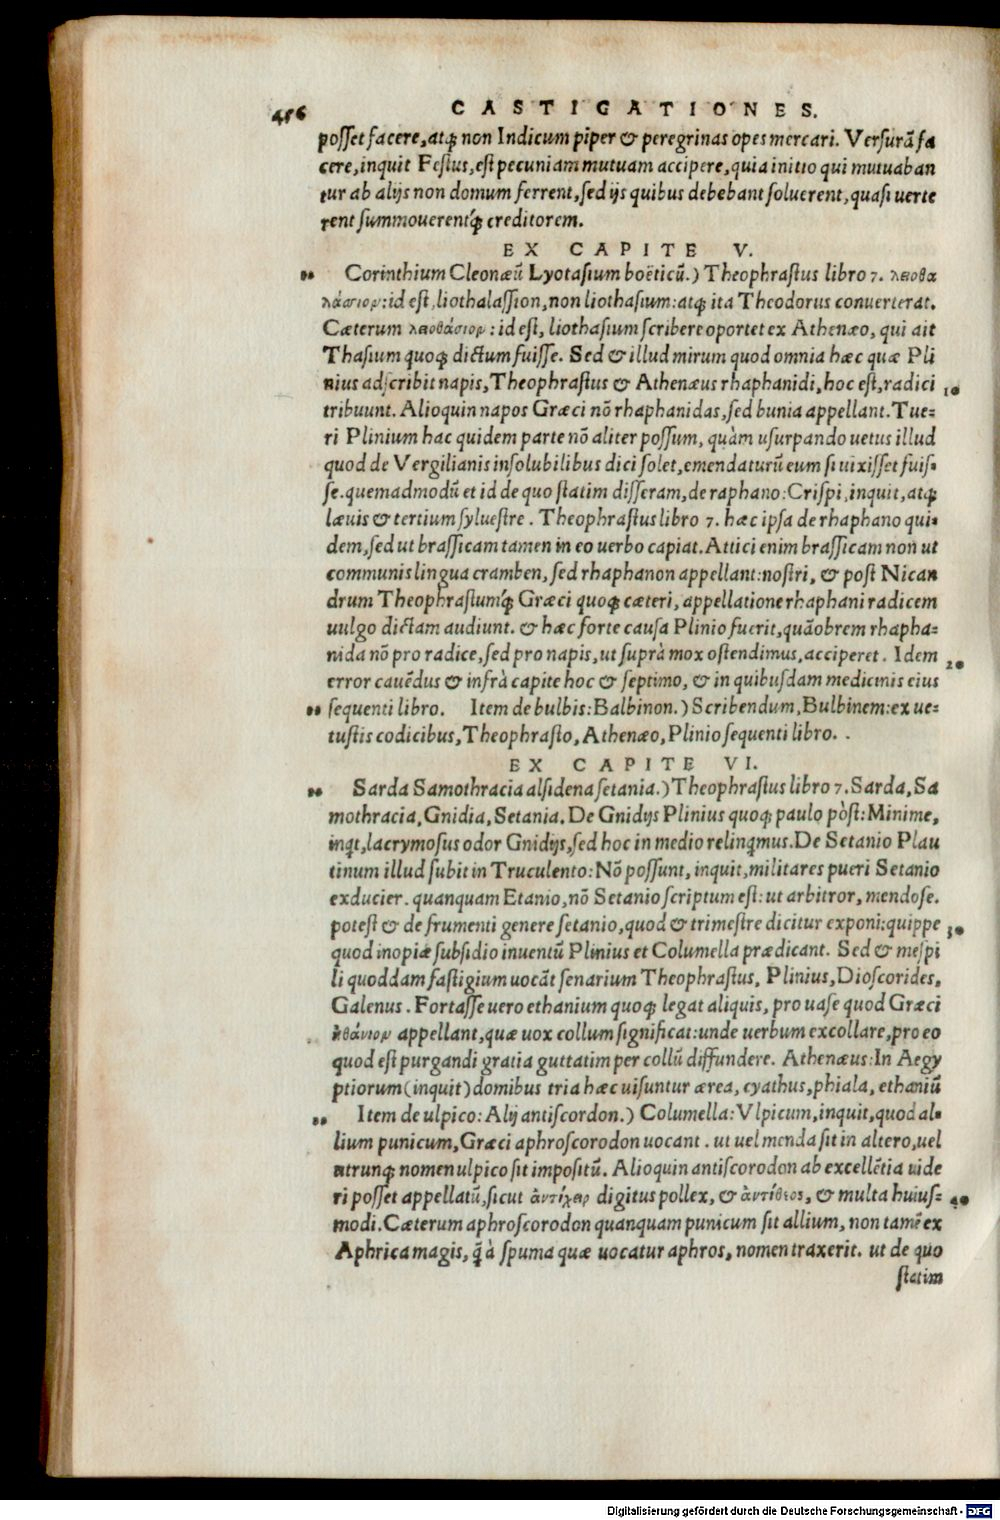 456 CASTIGATIONES.
posset facere, atq; non Indicum piper & peregrinas opes mercari. Versurã fa
cere, inquit Festus, est pecuniam mutuam accipere, quia initio qui mutuaban
tur ab alijs non domum ferrent, sed ijs quibus debebant soluerent, quasi uerte
rent summouerentq́; creditorem.
EX CAPITE V.
Corinthium Cleonæũ Lyotasium boëticũ.) Theophrastus libro 7. λειοθα
λάσιον: id est, liothalassion, non liothasium: atq; ita Theodorus conuerterat.
Cæterum λειοθάσιον: id est, liothasium scribere oportet ex Athenæo, qui ait
Thasium quoq; dictum fuisse. Sed & illud mirum quod omnia hæc quæ Pli
nius adscribit napis, Theophrastus & Athenæus rhaphanidi, hoc est, radici 10
tribuunt. Alioquin napos Græci nõ rhaphanidas, sed bunia appellant. Tue=
ri Plinium hac quidem parte nõ aliter possum, quàm usurpando uetus illud
quod de Vergilianis insolubilibus dici solet, emendaturũ eum si uixisset fuis=
se. quemadmodũ et id de quo statim disseram, de raphano: Crispi, inquit, atq;
læuis & tertium syluestre. Theophrastus libro 7. hæc ipsa de rhaphano qui=
dem, sed ut brassicam tamen in eo uerbo capiat. Attici enim brassicam non ut
communis lingua cramben, sed rhaphanon appellant: nostri, & post Nican
drum Theophrastumq́; Græci quoq; cæteri, appellatione rhaphani radicem
uulgo dictam audiunt. & hæc forte causa Plinio fuerit, quãobrem rhapha=
nida nõ pro radice, sed pro napis, ut suprà mox ostendimus, acciperet. Idem 20
error cauẽdus & infrà capite hoc & septimo, & in quibusdam medicinis eius
sequenti libro. Item de bulbis: Balbinon.) Scribendum, Bulbinem: ex ue=
tustis codicibus, Theophrasto, Athenæo, Plinio sequenti libro.
EX CAPITE VI.
Sarda Samothracia alsidena setania.) Theophrastus libro 7. Sarda, Sa
mothracia, Gnidia, Setania. De Gnidijs Plinius quoq; paulo pòst: Minime,
inq̇t, lacrymosus odor Gnidijs, sed hoc in medio relinq̇mus. De Setanio Plau
tinum illud subit in Truculento: Nõ possunt, inquit, militares pueri Setanio
exducier. quanquam Etanio, nõ Setanio scriptum est: ut arbitror, mendose.
potest & de frumenti genere setanio, quod & trimestre dicitur exponi: quippe 30
quod inopiæ subsidio inuentũ Plinius et Columella prædicant. Sed & mespi
li quoddam fastigium uocãt senarium Theophrastus, Plinius, Dioscorides,
Galenus. Fortasse uero ethanium quoq; legat aliquis, pro uase quod Græci
ἠθάνιον appellant, quæ uox collum significat: unde uerbum excollare, pro eo
quod est purgandi gratia guttatim per collũ diffundere. Athenæus: In Aegy
ptiorum (inquit) domibus tria hæc uisuntur ærea, cyathus, phiala, ethaniũ
Item de ulpico: Alij antiscordon.) Columella: Vlpicum, inquit, quod al=
lium punicum, Græci aphroscorodon uocant. ut uel menda sit in altero, uel
utrunq; nomen ulpico sit impositũ. Alioquin antiscorodon ab excellẽtia uide
ri posset appellatũ, sicut ἀντίχειρ digitus pollex, & ἀντίθεος, & multa huius= 40
modi. Cæterum aphroscorodon quanquam punicum sit allium, non tamẽ ex
Aphrica magis, q̃ à spuma quæ uocatur aphros, nomen traxerit. ut de quo
statim
Digitalisierung gefördert durch die Deutsche Forschungsgemeinschaft - DFG